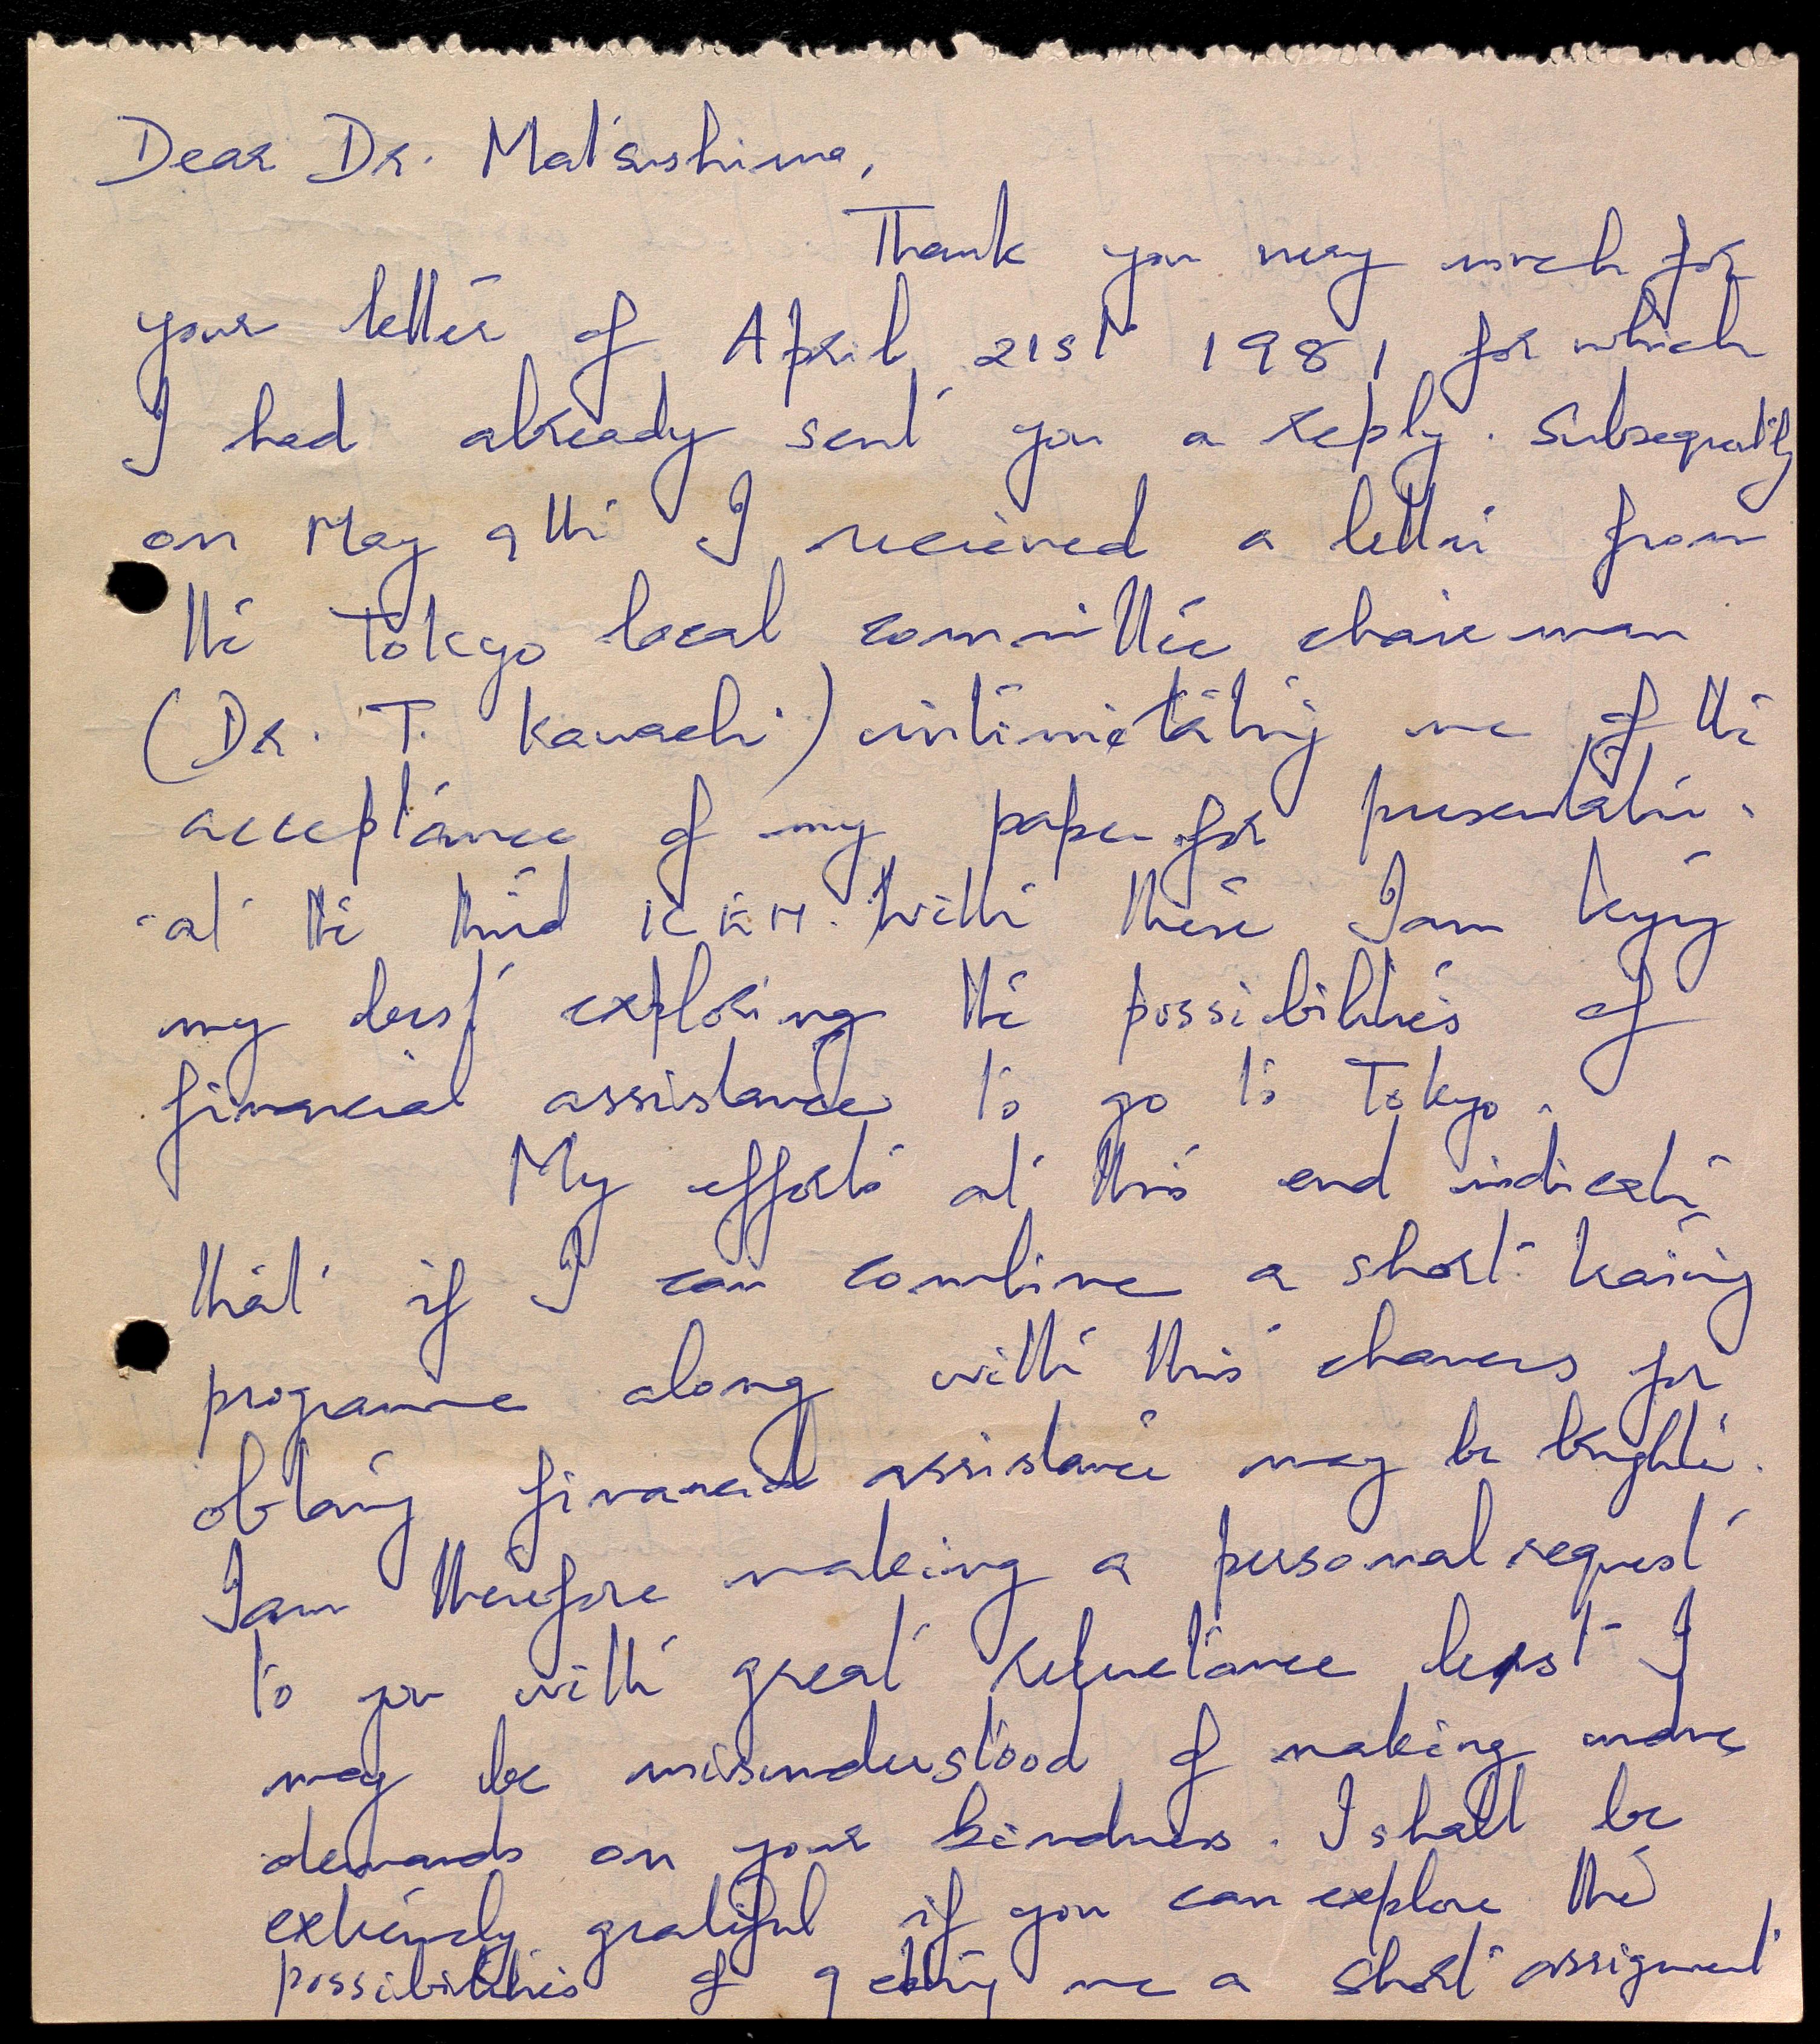 Dear Dr. Matsushima,
Thank you very much for
your letter of April 21st 1981 for which
I had already sent you a reply. Subsequently
on May 9th I recieved a letter from
the Tokyo local committee chairman
(Dr. T. Kawachi) intimating me of the
acceptance of my paper for presentation
at the third ICEM. With these I am trying
my best exploring the possibilities of
financial assistance to go to Tokyo.
My efforts at this end indicate
that if I can combine a short training
programme along with this chances for
obtaing financial assistance may be brighter.
I am therefore making a personal request
to you with great reluctance lest I
may be misunderstood of making undue
demands on your kindness. I shall be
extremely grateful if you can explore the
possibilities of getting me a short assignment